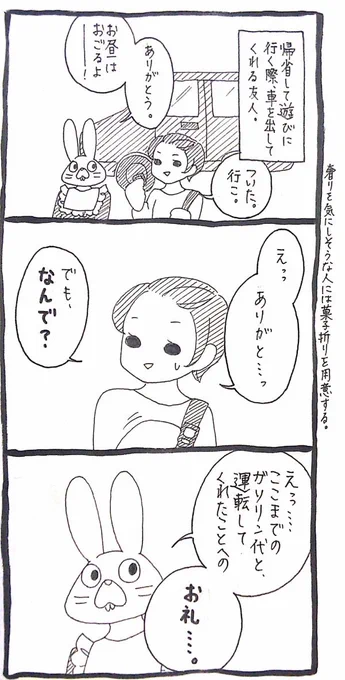 帰省して遊びに
行く際、車を出して
くれる友人。
ついた。
行こ。
ありがとう。
お昼は
おごるよ
ー!
香りを気にしそうな人には菓子折りを用意する。
えっ
ありがと…っ
でも、
なんで?
えっ……
ここまでの
ガソリン代と、
運転して
くれたことへの
お礼……。